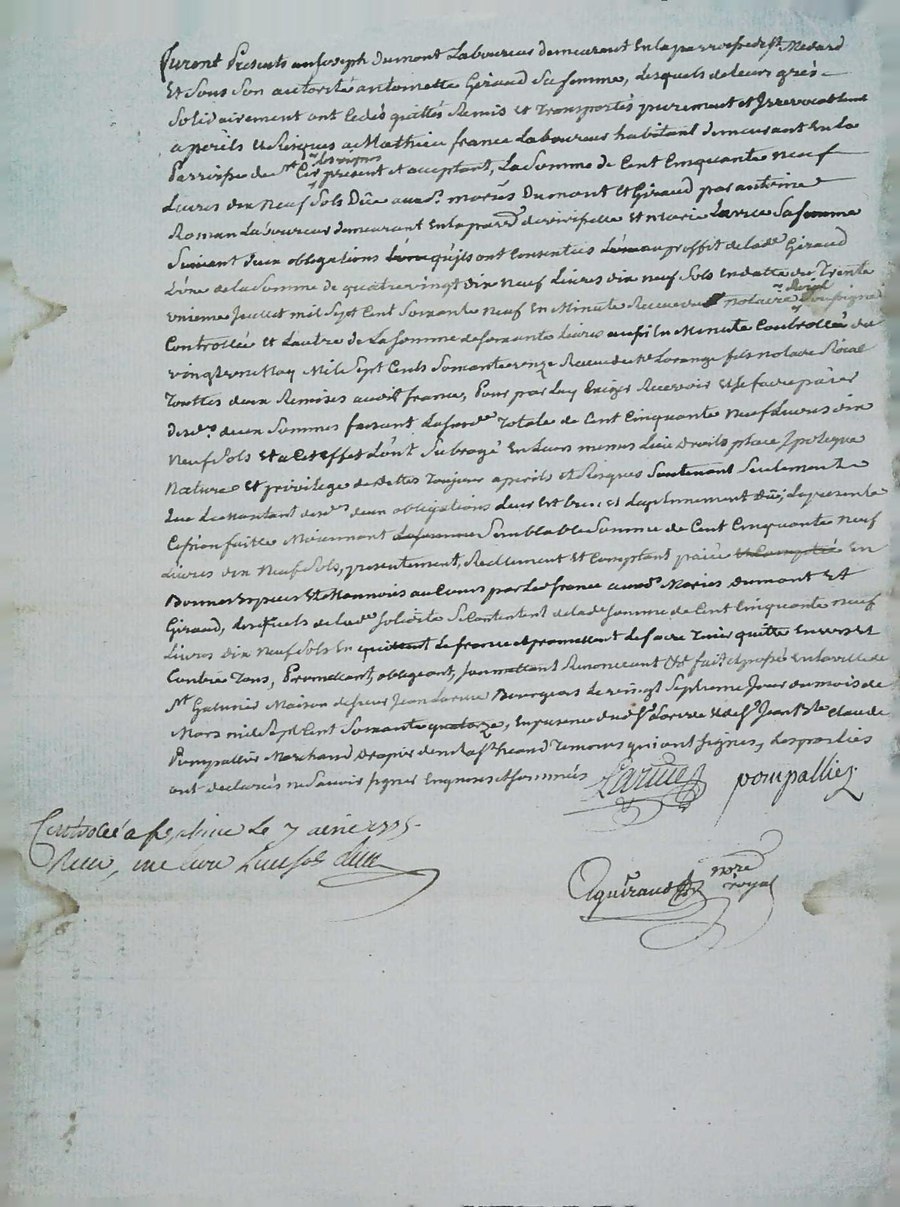 furent Presents anJoseph Dumont Laboureur demeurant En la parroisse de St. Medard
Et Sous Son autorité antoinette Giraud Sa femme, Lesquels de leurs grés
Solidairement ont Cedés quittés Remis et Transportés purement et Irrevocablement
a perils et Risques a Mathieu france Laboureur habitant demeurant En la
Parroisse de St. present et acceptant, La Somme de Cent Cinquante neuf
Livres dix Neuf Sols Dûe auxd. mariés Dumont et Giraud par antoine
Roman Laboureur demeurant en la parr. de et marie Larue Sa femme
Suivant deux obligations qu'ils ont Consenties au proffit de lade. Giraud
L'une de la Somme de quatre vingt dix Neuf Livres dix neuf Sols En datte du Trente
unieme Juillet mil Sept Cent Soixante Neuf En Minute Receue du notaire Royal Soussigné
Controllée et L'autre de La Somme de Soixante Livres aussi En Minute Controllée du
vingt May Mil Sept Cents Soixante onze Receue de Me Lorange fils notaire Royal
Touttes deux Remises audit france, Pour par Luy Exiger Recevoir et Se faire païer
Desd. deux Sommes faisant Lasusde. Totale de Cent Cinquante Neuf Livres dix
Neuf Sols Et a Cet effet L'ont Subrogé En leurs memes Lieu Droits place Ipoteque
Nature et privilege de Dettes Toujour a perils et Risques Soutenant Seulement
Que Le montant desd. deux obligations Leur Est bien et Legitimement Dû; La presente
Cession faitte Moiennant Semblable Somme de Cent Cinquante Neuf
Livres dix Neuf Sols, presentement, Reellement Et Comptant païée En
Bonnes Especes Et Monnoies au Cours par Led. france auxd. Mariés dumont Et
Giraud, Lesquels de lade. Solidité Se Contentent de lade Somme de Cent Cinquante neuf
Livres dix Neuf Sols En quittent Le france et promettent Le faire Tenir quitte Envers et
Contre Tous, Promettant, obligeant, Soumettant Renonceant &t fait et passé En la ville de
St. Galmier Maison de Sieur Jean Larue Bourgeois Le vingt Septieme Jour du mois de
Mars mil Sept Cent Soixante quatorze, En presence dud. Sr. Larue et de Sr. Jean Bte Claude
Pompallier Marchand Drapier de lad. St. Temoins qui ont signés, Les parties
ont declarés ne Savoir signer Enquises et Sommées
Larue pompallier
Controllé a le 7 avril 1775.
Reçu, une livre
aguiraud nore royal